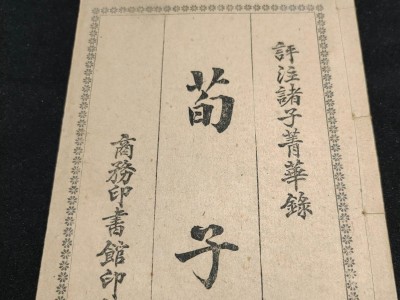 評注諸子菁華錄
荀子
商務印書館印